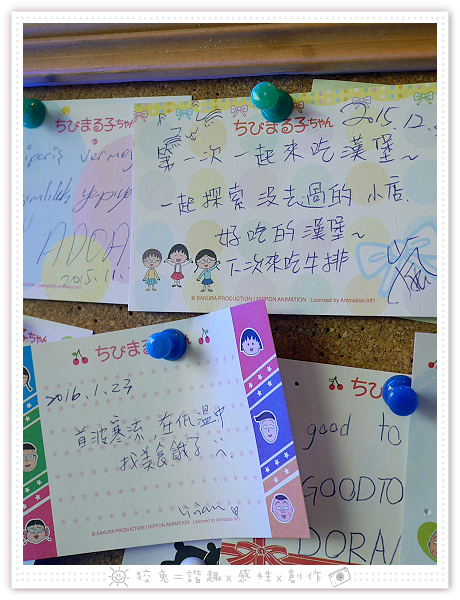 ちびまる子ちゃん
ADORA
2015.11.
ちびまる子ちゃん
2015.12.
第一次一起來吃漢堡~
一起探索沒去過的小店.
好吃的漢堡~
下次來吃牛排
© SAKURA PRODUCTION / NIPPON ANIMATION Licensed by Animation Int'l
ちゃん
ちびまる子ちゃん
2016.1.23
首波寒流 在低溫中
找美食、餓了
© SAKURA PRODUCTION / NIPPON ANIMATION Licensed by Animation Int'l
ちび
good to
GOOD TO
DORA!
狡兔=諧趣x感性x創作